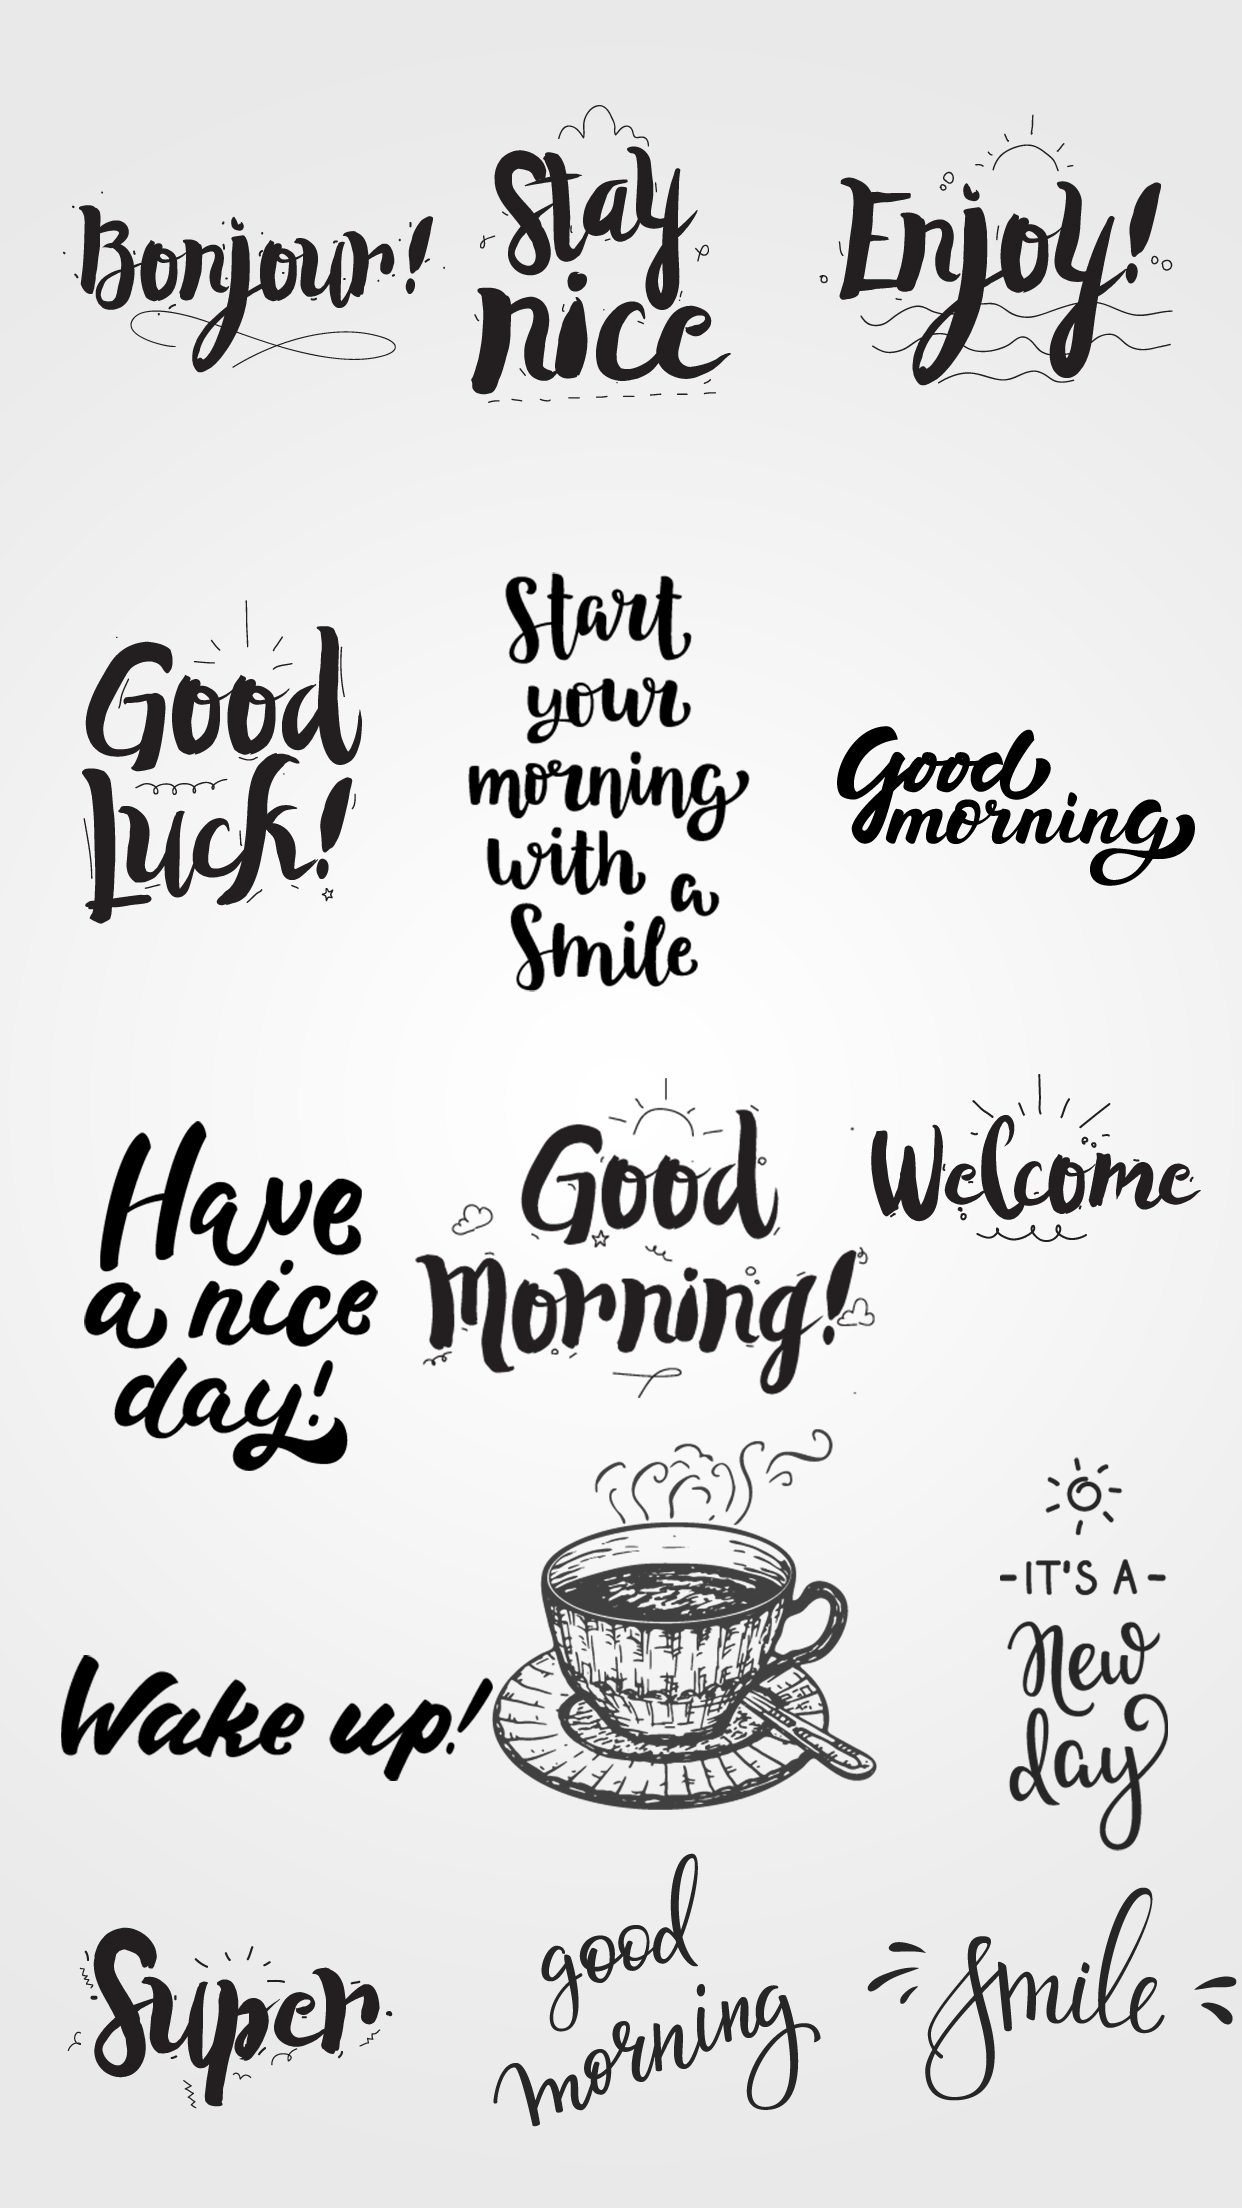 Bonjour!
Stay
nice
Enjoy!
Good
Luck!
Start
your
morning
with a
Smile
Good
morning
Have
a nice
day!
Good
Morning!
Welcome
Wake up!
-IT'S A-
New
day
Super
good
morning
Smile